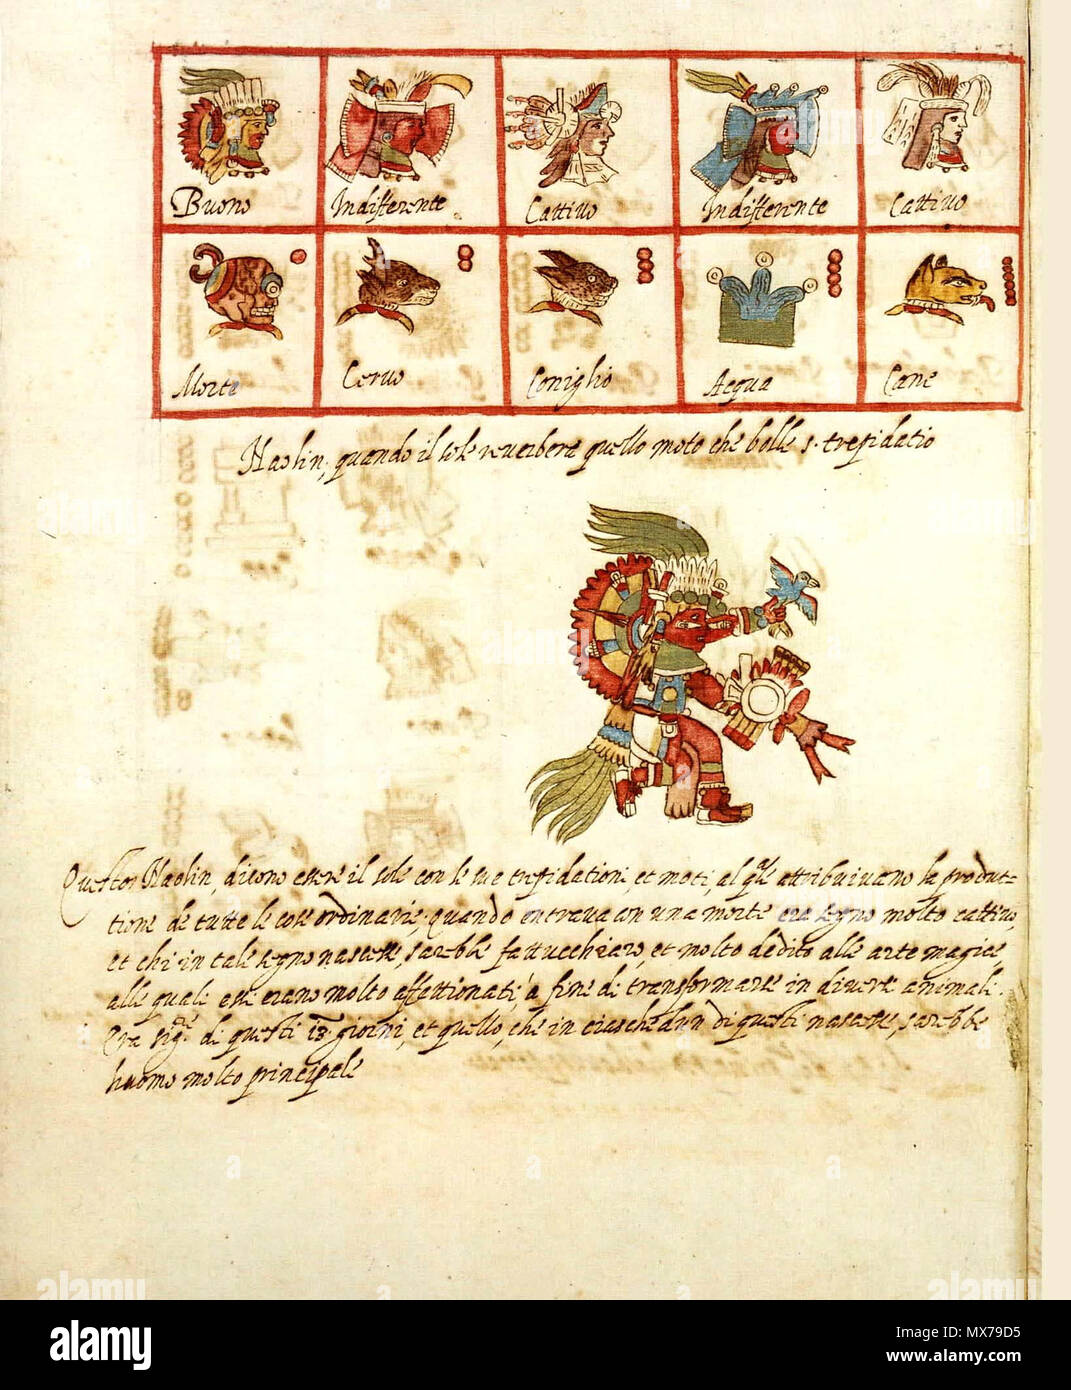 Buono Indifferente Cattiuo Indifferente Cattiuo
Morte Ceruo Coniglio Acqua Cane
Naolin, quando il sole reuerbera quello moto che bolle s. trepidatio
Questo Naolin, dicono essere il sole con le sue trepidationi, et moti, al qle attribuiuano la produt-
tione de tutte le cose ordinarie; quando entraua con una morte era segno molto cattiuo,
et chi in tale segno nascesse, sarebbe fattucchiaro, et molto dedito alle arte magice,
alle quali essi erano molto affettionati, à fine di transformarse in diuersi animali.
Era sigre di questi 13 giorni, et quello, che in ciaschedun di questi nascesse, sarebbe
huomo molto principale
alamy
a
alamy
Image ID: MX79D5
www.alamy.com